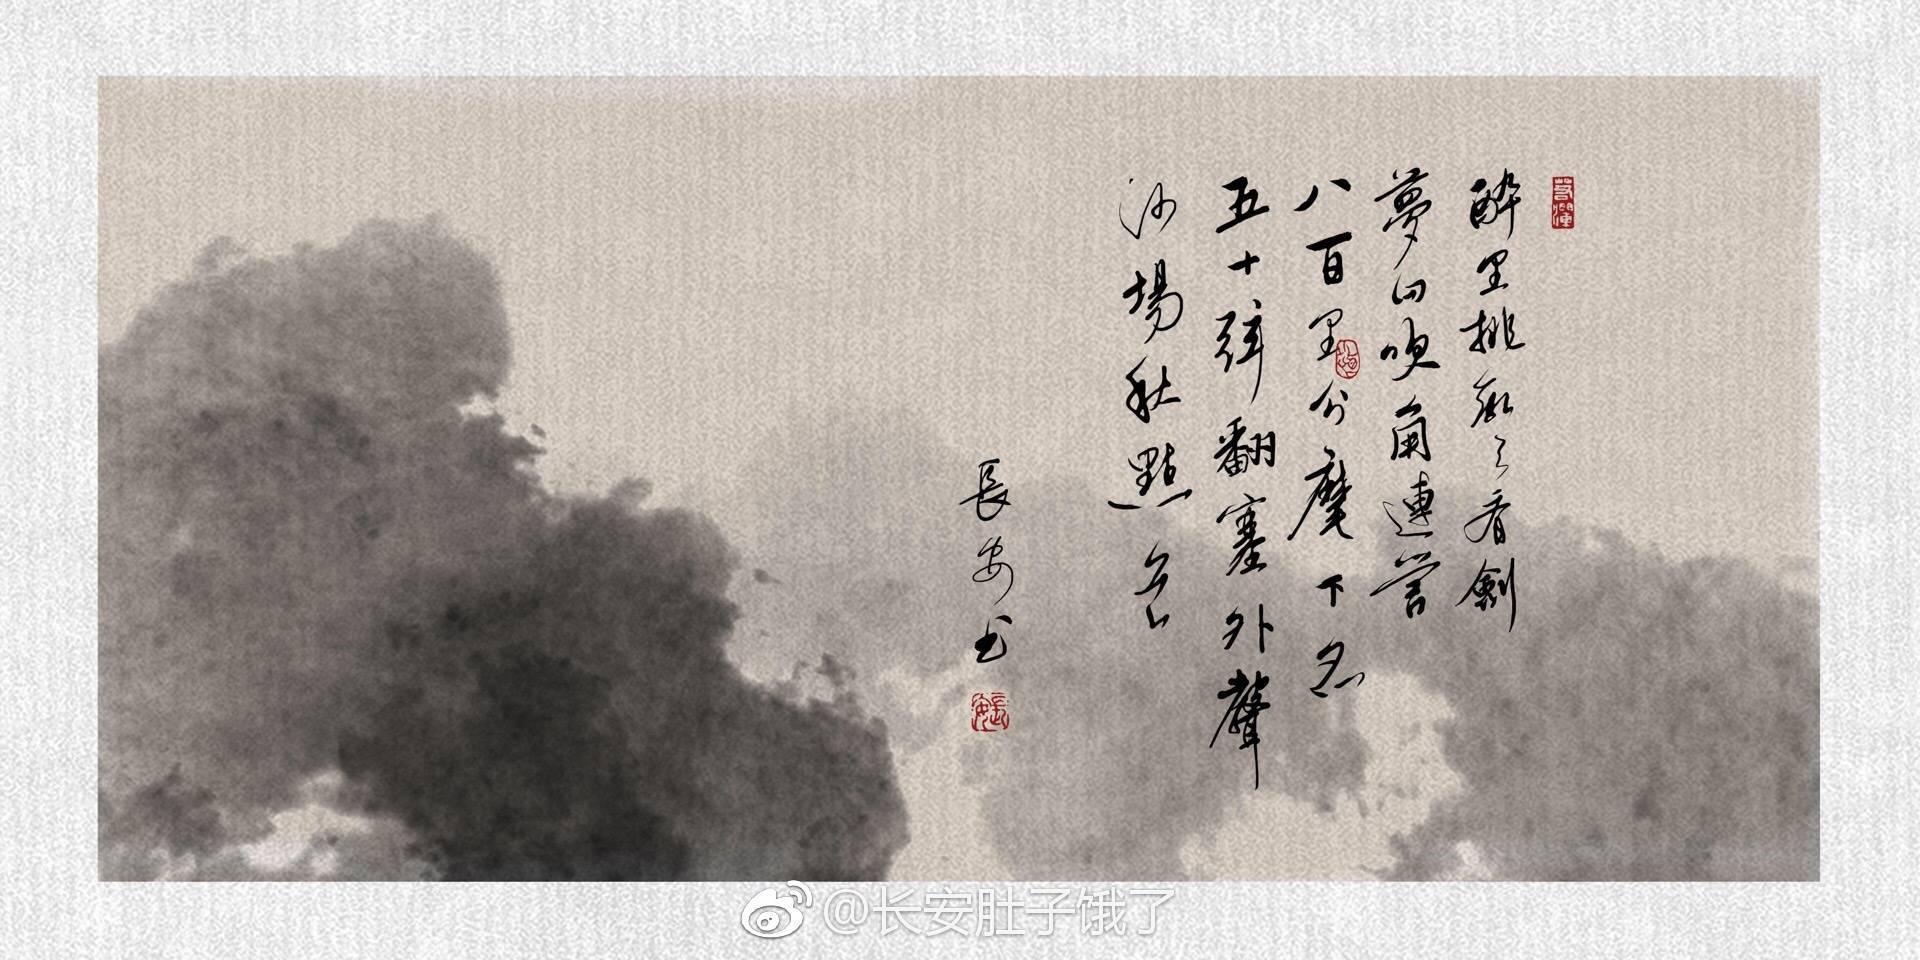 醉里挑燈看劍
夢回吹角連營
八百里分麾下炙
五十弦翻塞外聲
沙場秋點兵
長安书
長安
@长安肚子饿了